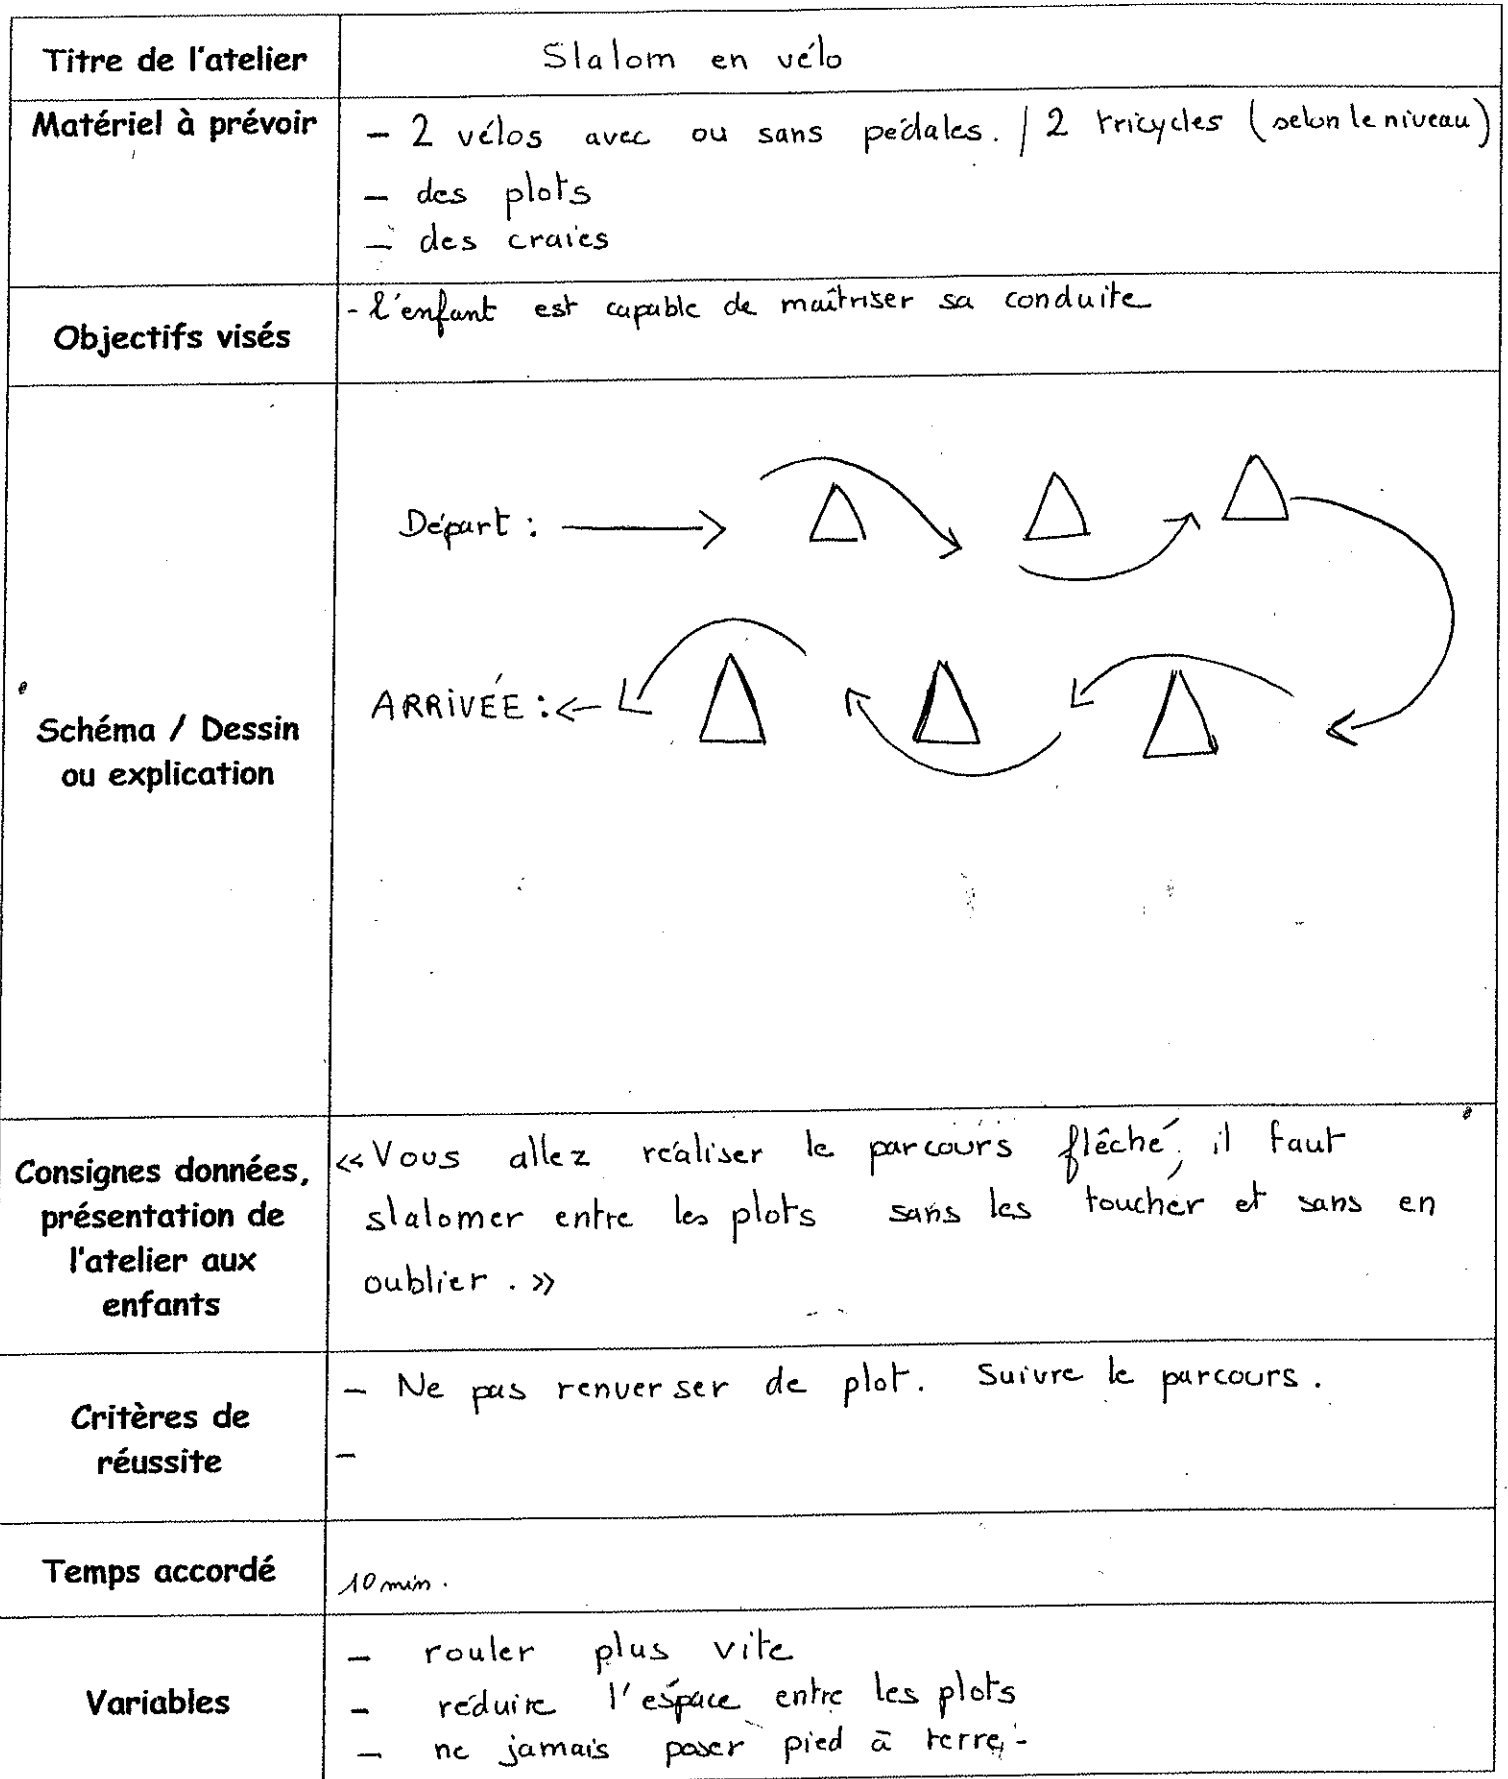 Titre de l'atelier
Slalom en vélo
Matériel à prévoir
- 2 vélos avec ou sans pédales. / 2 tricycles (selon le niveau)
- des plots
- des craies
Objectifs visés
- l'enfant est capable de maîtriser sa conduite
Schéma / Dessin
ou explication
Départ :
ARRIVÉE :
Consignes données,
présentation de
l'atelier aux
enfants
«Vous allez réaliser le parcours flêché, il faut
slalomer entre les plots sans les toucher et sans en
oublier . »
Critères de
réussite
- Ne pas renverser de plot. Suivre le parcours.
-
Temps accordé
10 min.
Variables
- rouler plus vite
- réduire l'espace entre les plots
- ne jamais poser pied à terre.